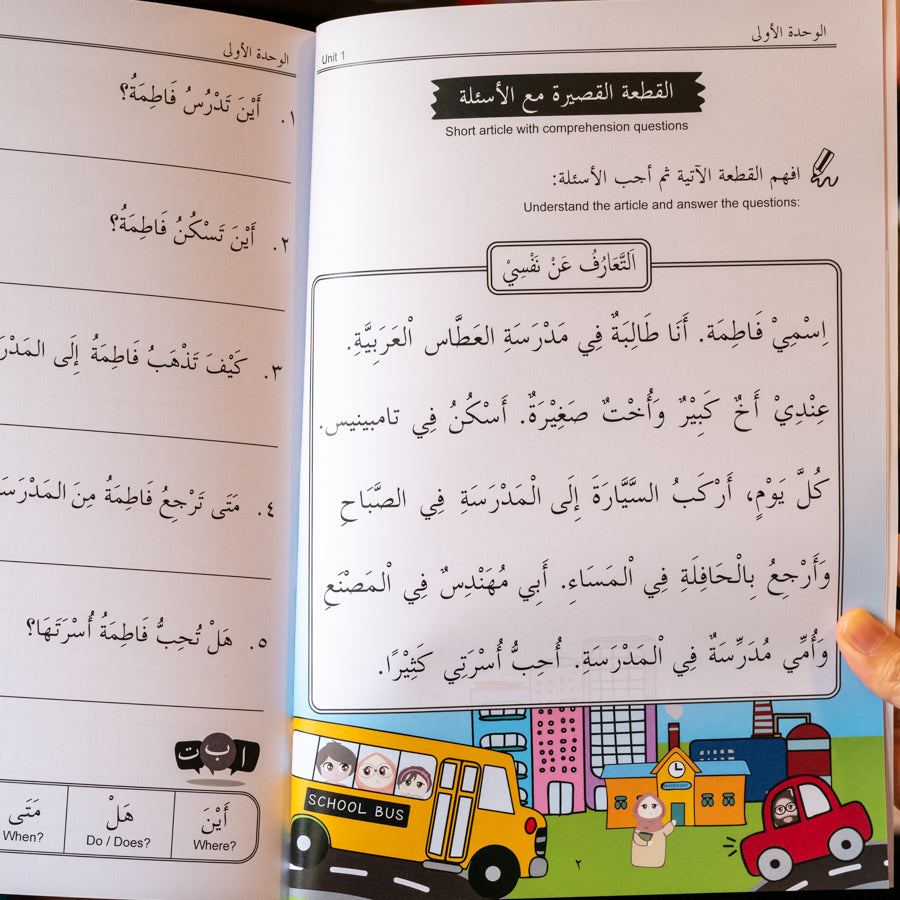 الوحدة الأولى
Unit 1
القطعة القصيرة مع الأسئلة
Short article with comprehension questions
افهم القطعة الآتية ثم أجب الأسئلة:
Understand the article and answer the questions:
اَلتَّعَارُفُ عَنْ نَفْسِيْ
اِسْمِيْ فَاطِمَة. أَنَا طَالِبَةٌ فِي مَدْرَسَةِ العَطَّاس الْعَرَبِيَّةِ.
عِنْدِيْ أَخٌ كَبِيْرٌ وَأُخْتٌ صَغِيْرَةٌ. أَسْكُنُ فِي تامبينيس.
كُلَّ يَوْمٍ، أَرْكَبُ السَّيَّارَةَ إِلَى الْمَدْرَسَةِ فِي الصَّبَاحِ
وَأَرْجِعُ بِالْحَافِلَةِ فِي الْمَسَاءِ. أَبِي مُهَنْدِسٌ فِي الْمَصْنَعِ
وَأُمِّي مُدَرِّسَةٌ فِي الْمَدْرَسَةِ. أُحِبُّ أُسْرَتِي كَثِيْرًا.
SCHOOL BUS
MADRASAH
٢
الوحدة الأولى
١. أَيْنَ تَدْرُسُ فَاطِمَةُ؟
٢. أَيْنَ تَسْكُنُ فَاطِمَةُ؟
٣. كَيْفَ تَذْهَبُ فَاطِمَةُ إِلَى
٤. مَتَى تَرْجِعُ فَاطِمَةُ مِنَ
٥. هَلْ تُحِبُّ فَاطِمَةُ أُسْرَتَهَا؟
ا ب ت
أَيْنَ هَلْ مَتَى
Where? Do / Does? When?